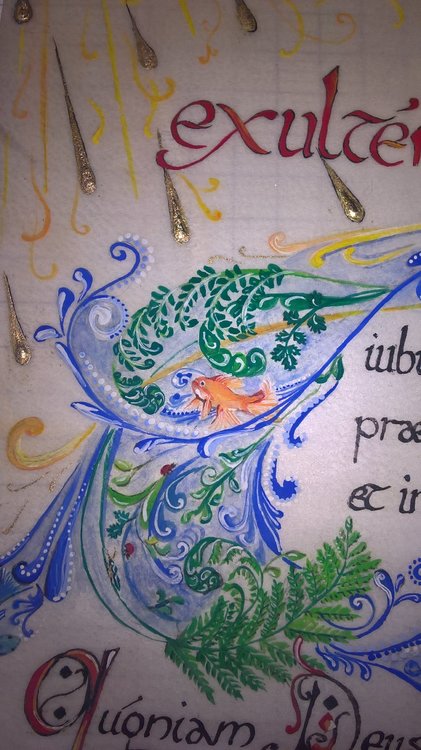 exulté
iub
præ
et in
Quóniam Deus